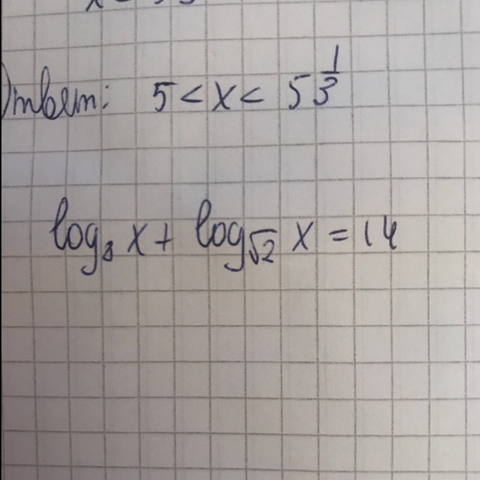 Ответ: 5 < x < 5 1/3
log₈ x + log_√2 x = 14